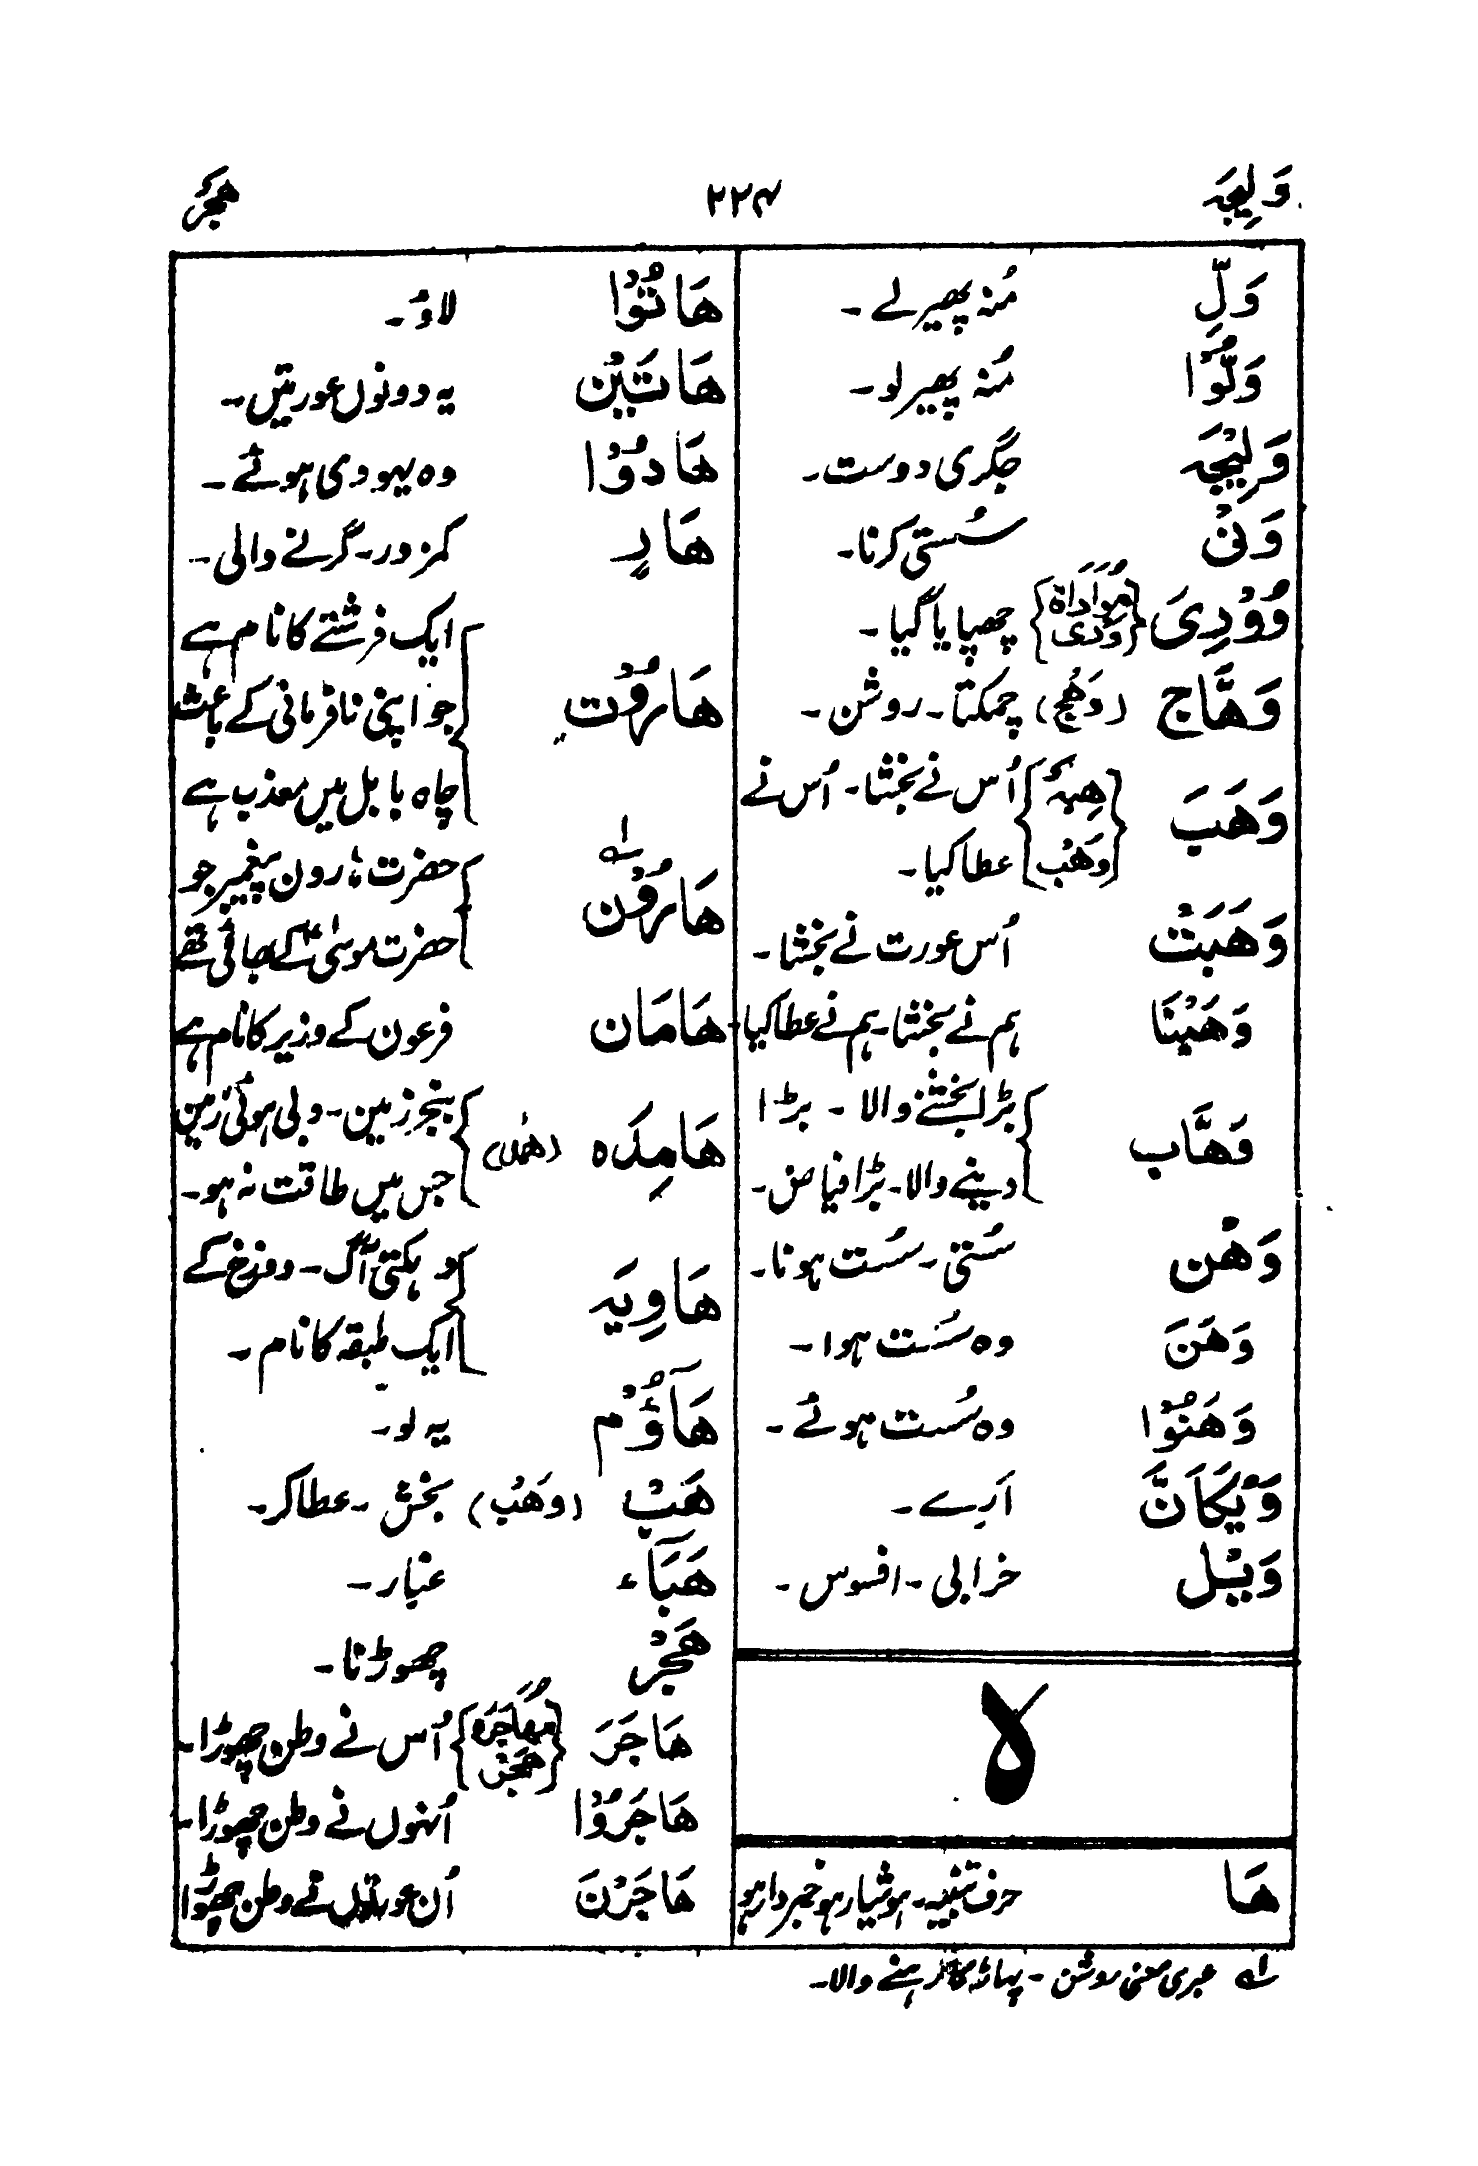 وَلِیجَہ ۲۲۴ ھَجْرٌ
وَلِّ مُنہ پھیرلے۔
وَلُّوْا مُنہ پھیرلو۔
وَلِیْجَہ جگری دوست۔
وَنْیْ سُستی کرنا۔
وُوْرِیَ {مُوَاراۃ وَرْی} چھپایا گیا۔
وَھَّاج (وَھْج) چمکتا۔ روشن۔
وَھَبَ {ھِبَۃٌ وَھْب} اُس نے بخشا۔ اُس نے
عطا کیا۔
وَھَبَتْ اُس عورت نے بخشا۔
وَھَبْنَا ہم نے بخشا۔ ہم نے عطا کیا۔
وَھَّاب بڑا بخشنے والا۔ بڑا
دینے والا۔ بڑا فیاض۔
وَھْن سُستی۔ سُست ہونا۔
وَھَنَ وہ سُست ہوا۔
وَھَنُوْا وہ سُست ہوئے۔
وَیْکَاَنَّ ارے۔
وَیْل خرابی۔ افسوس۔
ہ
ھَا حرف تنبیہ۔ ہوشیار ہو خبردار ہو
ھَاتُوْا لاؤ۔
ھَاتَیْن یہ دونوں عورتیں۔
ھَادُوْا وہ یہودی ہوئے۔
ھَارٍ کمزور۔ گرنے والی۔
ھَارُوْت ایک فرشتے کا نام ہے
جو اپنی نافرمانی کے باعث
چاہ بابل میں معذب ہے
ھَارُوْن ؂۱ حضرت ہارون پیغمبر جو
حضرت موسیٰؑ کے بھائی تھے
ھَامَان فرعون کے وزیر کا نام ہے
ھَامِدَہ (ھمد) بنجر زمین۔ دبی ہوئی زمین
جس میں طاقت نہ ہو۔
ھَاوِیَہ دہکتی آگ۔ دوزخ کے
ایک طبقہ کا نام۔
ھَآؤُمْ یہ لو۔
ھَبْ (وَھْب) بخش۔ عطا کر۔
ھَبَآء غبار۔
ھَجْر چھوڑنا۔
ھَاجَرَ {مُھَاجَرَہ ھَجْر} اُس نے وطن چھوڑا۔
ھَاجَرُوْا اُنہوں نے وطن چھوڑا۔
ھَاجَرْنَ اُن عورتوں نے وطن چھوڑا
؂۱ عبری معنی روشن۔ پہاڑ کا رہنے والا۔